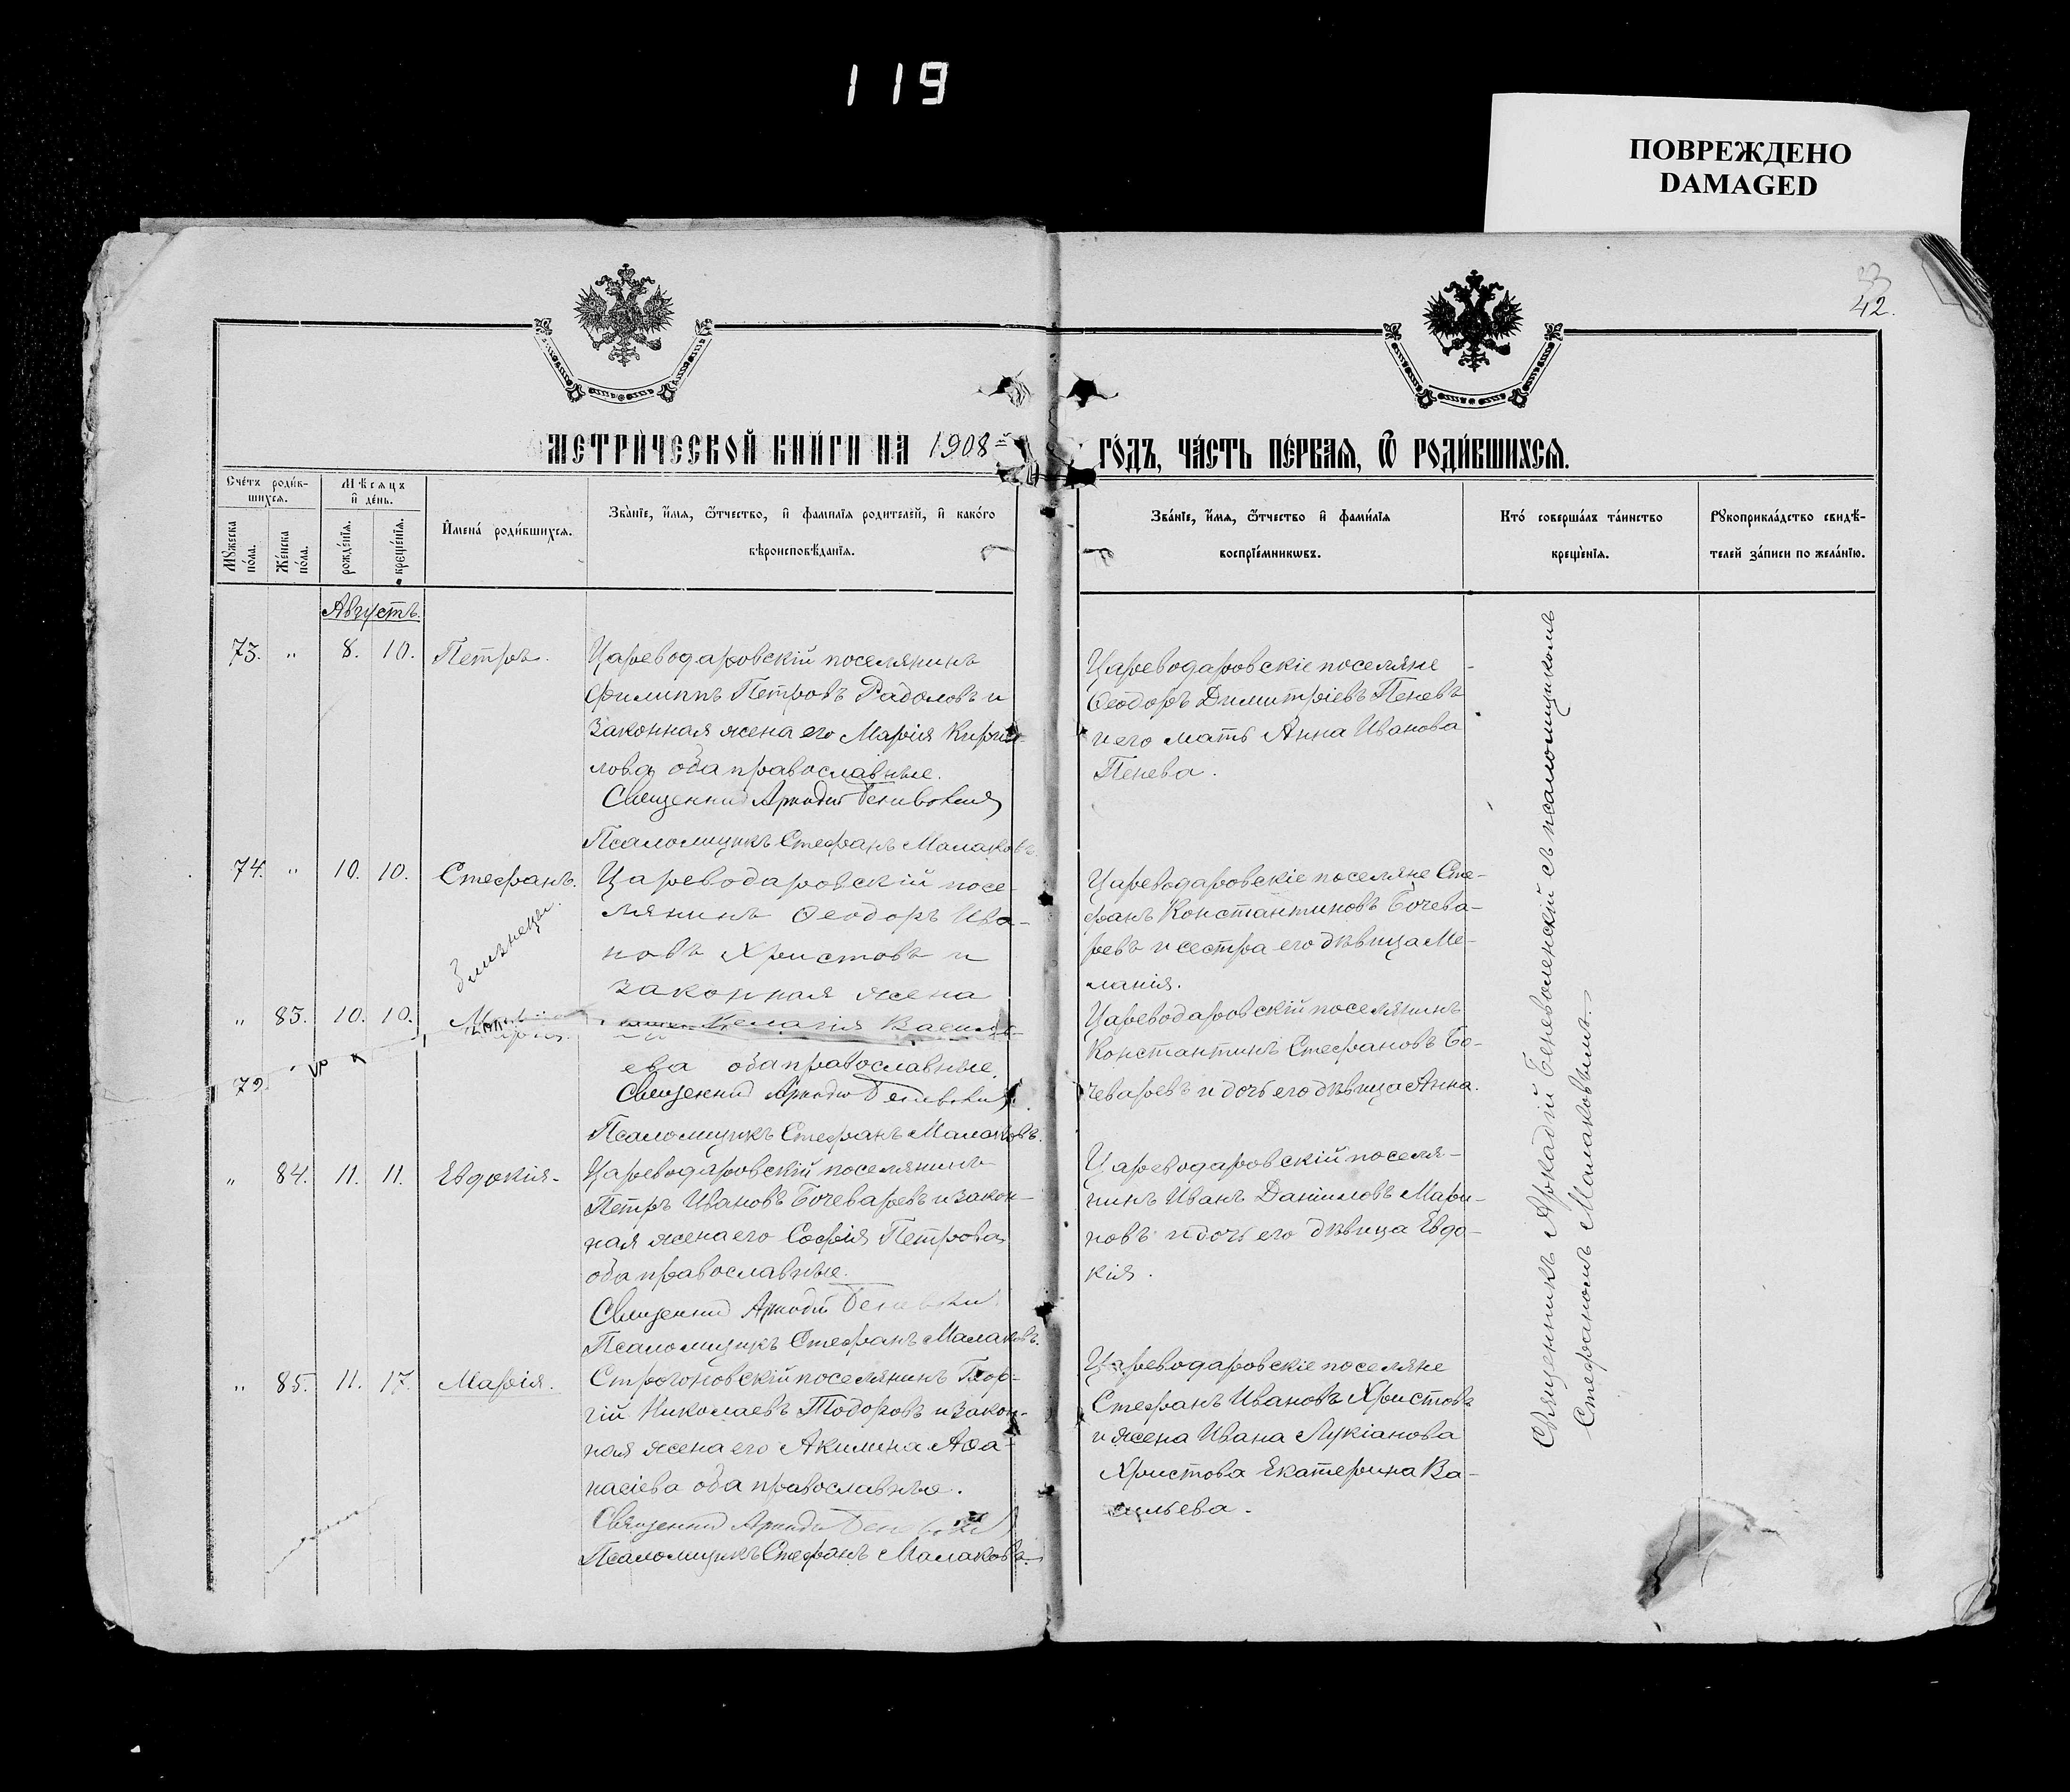 119
ПОВРЕЖДЕНО
DAMAGED
42.
МЕТРИ́ЧЕСКОЙ КНИ́ГИ НА 1908 й
ГО́ДЪ, ЧА́СТЬ ПЕ́РВАѦ, Ѿ РОДИ́ВШИХСѦ.
Сче́тъ роди́в-
шихсѧ.
Мꙋ́жеска по́ла.
Же́нска по́ла.
Мѣ́сѧцъ
и҆ де́нь.
рожде́нїѧ.
креще́нїѧ.
И҆мена̀ роди́вшихсѧ.
Зва́нїе, и҆́мѧ, ѻ҆́тчество, и҆ фами́лїѧ роди́телей, и҆ како́гѡ
вѣроисповѣ́данїѧ.
Зва́нїе, и҆́мѧ, ѻ҆́тчество и҆ фами́лїѧ
воспрїе́мникѡвъ.
Кто̀ соверша́лъ та́инство
креще́нїѧ.
Рꙋкоприкла́дство свидѣ́-
телей за́писи по жела́нїю.
Августъ.
73. „ 8. 10. Петръ.
Цареводаровскій поселянинъ
Филиппъ Петровъ Радоловъ и
законная жена его Марія Кирил-
лова, оба православные.
Священник Аркадій Беневоленскій
Псаломщикъ Стефанъ Малаковъ.
Цареводаровскіе поселяне
Ѳеодоръ Димитріевъ Пеневъ
и его мать Анна Иванова
Пенева.
74. „ 10. 10. Стефанъ.
Близнецы.
Цареводаровскій посе-
лянинъ Ѳеодоръ Ива-
новъ Христовъ и
законная жена
Пелагія Василь-
ева оба православные.
Священник Аркадій Беневоленскій
Псаломщикъ Стефанъ Малаковъ.
Цареводаровскіе поселяне Сте-
фанъ Константиновъ Бочева-
ровъ и сестра его дѣвица Ме-
ланія.
„ 83. 10. 10. Марія.
79.
Цареводаровскій поселянинъ
Константинъ Стефановъ Бо-
чеваровъ и дочь его дѣвица Анна.
„ 84. 11. 11. Евдокія.
Цареводаровскій поселянинъ
Петръ Ивановъ Бочеваровъ и закон-
ная жена его Софія Петрова,
оба православные.
Священник Аркадій Беневоленскій
Псаломщикъ Стефанъ Малаковъ.
Цареводаровскій поселя-
нинъ Иванъ Даніиловъ Мари-
новъ и дочь его дѣвица Евдо-
кія.
„ 85. 11. 17. Марія.
Строгоновскій поселянинъ Геор-
гій Николаевъ Тодоровъ и закон-
ная жена его Акилина Аѳа-
насіева оба православные.
Священник Аркадій Беневоленскій
Псаломщикъ Стефанъ Малаковъ.
Цареводаровскіе поселяне
Стефанъ Ивановъ Христовъ
и жена Ивана Лукіанова
Христова Екатерина Ва-
сильева.
Священникъ Аркадій Беневоленскій съ псаломщикомъ
Стефаномъ Малаковымъ.